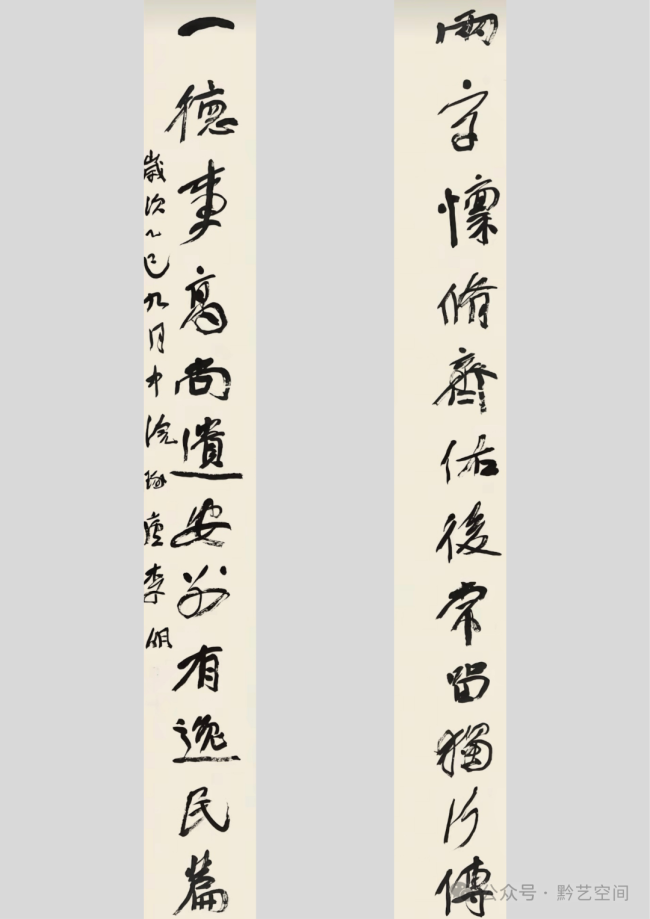 兩字懍脩齊佑後常留獨行傳
一德事高尚遺安別有逸民篇
歲次乙巳九月中浣 李
公众号 · 黔艺空间